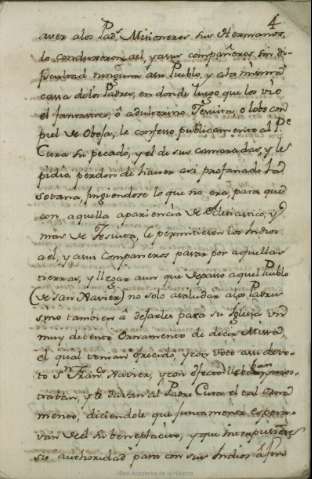 4
aver alos Pad.s Misioneros sus Hermanos,
lo condujeron ael, y asus compañeros sin di-
ficultad ninguna asu Pueblo, y ala misma
casa delos Padres, en donde luego que lo vio
el fantastico, ô adulterino Jesuita, o lobo con
piel de Obeja, le confeso publicamente al P.e
Cura su pecado, y el de sus camaradas, y le
pidio perdon de haver asi profanado la
sotana, fingiendose lo que no era, para que
con aquella apariencia de Eclesiastico, y
mas de Jesuita, le permitiesen los Indios
ael, y asus Compañeros pasar por aquellas
tierras, y llegar aun que de paso aquel Pueblo
(de San Xavier) no solo asaludar alos Padres
sino tambien â dejarles para su Iglesia un
muy decente Ornamento de decir Missa
el qual venian ofreciendo, y con voto asu devo-
to S.n Fran.co Xavier, y con efecto
traban, y le dieron al Padre Cura el tal Orna-
mento, diciendole que juntamente espera-
van del su beneplacito, y que interpusiese
su authoridad para con sus Indios â fin